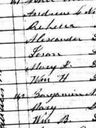 Andrew J
Rebecca
Alexander
Jesse
Mary J.
Wm H
Benjamin
Mary
Wm B.